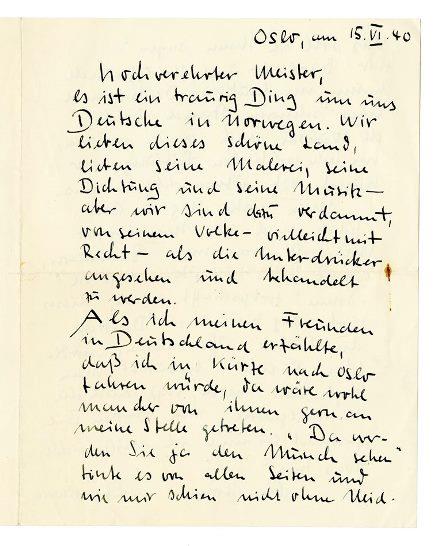 Oslo, am 15.VI.40
Hochverehrter Meister,
es ist ein traurig Ding um uns
Deutsche in Norwegen. Wir
lieben dieses schöne Land,
lieben seine Malerei, seine
Dichtung und seine Musik –
aber wir sind dazu verdammt,
von seinem Volke – vielleicht mit
Recht – als die Unterdrücker
angesehen und behandelt
zu werden.
Als ich meinen Freunden
in Deutschland erzählte,
daß ich in Kürze nach Oslo
fahren würde, da wäre wohl
mancher von ihnen gern an
meine Stelle getreten. „Da wer-
den Sie ja den Munch sehen"
tönte es von allen Seiten und
wie mir schien nicht ohne Neid.